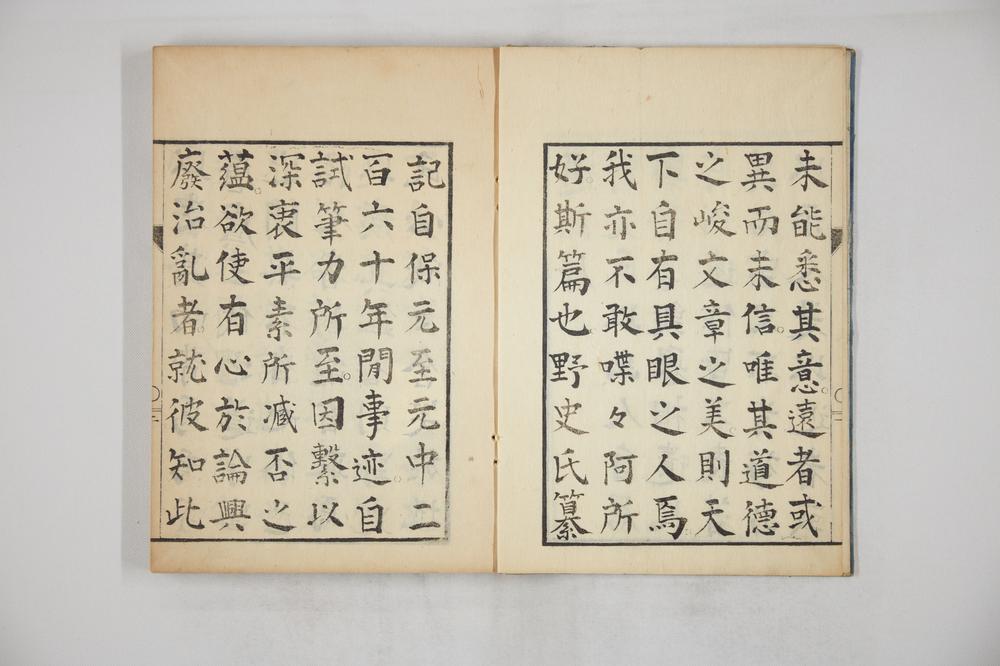 未能悉其意。遠者或
異而未信。唯其道德
之峻文章之美。則天
下自有具眼之人焉
我亦不敢喋々阿所
好。斯篇也野史氏纂
記自保元至元中二
百六十年間事迹。自
試筆力所至。因繫以
深衷平素所減否之
蘊。欲使有心於論興
廢治亂者。就彼知此